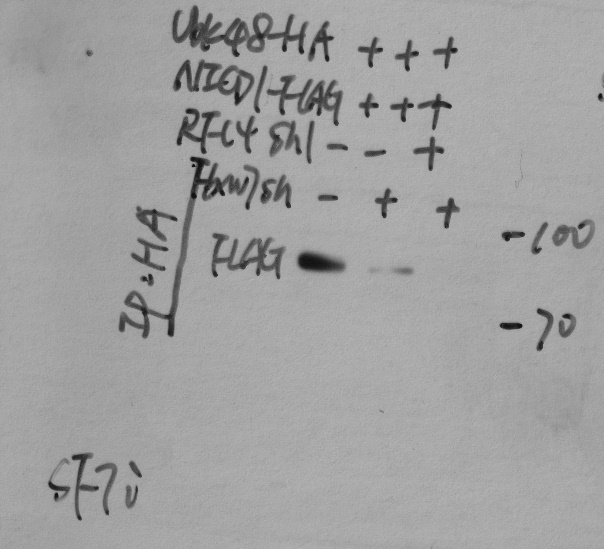 Ubk48-HA + + +
NICD1-FLAG + + +
RFC4 sh1 - - +
Fbxw7sh - + +
-100
IP:HA
FLAG
-70
SF-7i